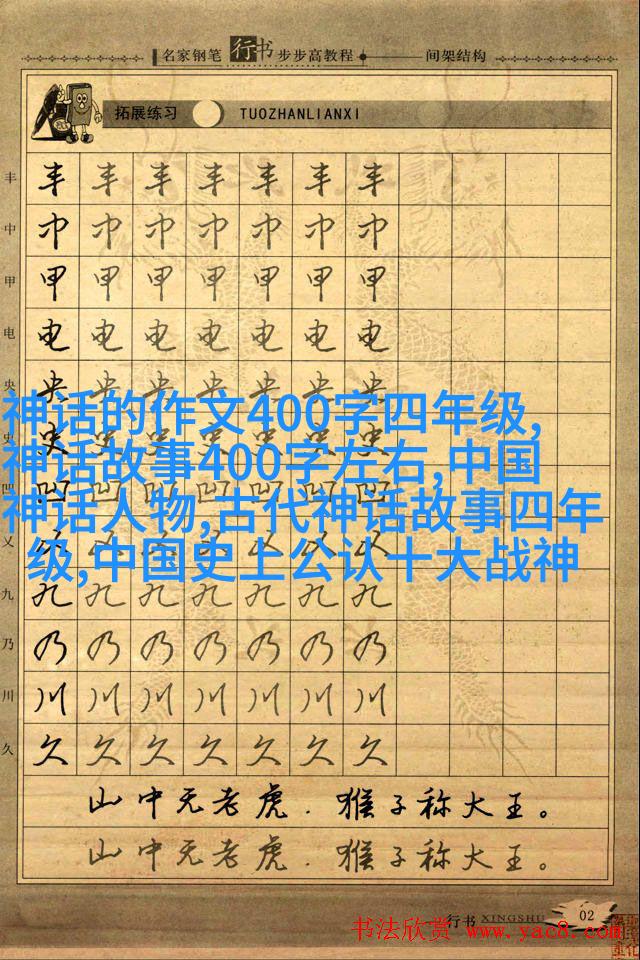 名家钢笔 行书 步步高教程 间架结构
拓展练习 TUOZHANLIANXI
丰 丰 丰 丰 丰 丰 丰 丰
中 中 中 中 中 中 中 中
甲 甲 甲 甲 甲 甲 甲 甲
电 电 电 电 电 电 电 电
央 央 央 央 央 央 央 央
神话的作文400字四年级,
史 史 史 史 史 史 史 史
神话故事400字左右,中国
凹 凹 凹 凹 凹 凹 凹 凹
神话人物,古代神话故事四年
义 义 义 义 义 义 义 义
级,中国史上公认十大战神
九 九 九 九 九 九 九 九
乃 乃 乃 乃 乃 乃 乃 乃
川 川 川 川 川 川 川 川
久 久 久 久 久 久 久 久
山中无老虎．猴子称大王。
山中无老虎．猴子称大王。
行书 XINGSHU 02
书法欣赏 www.yac8.com